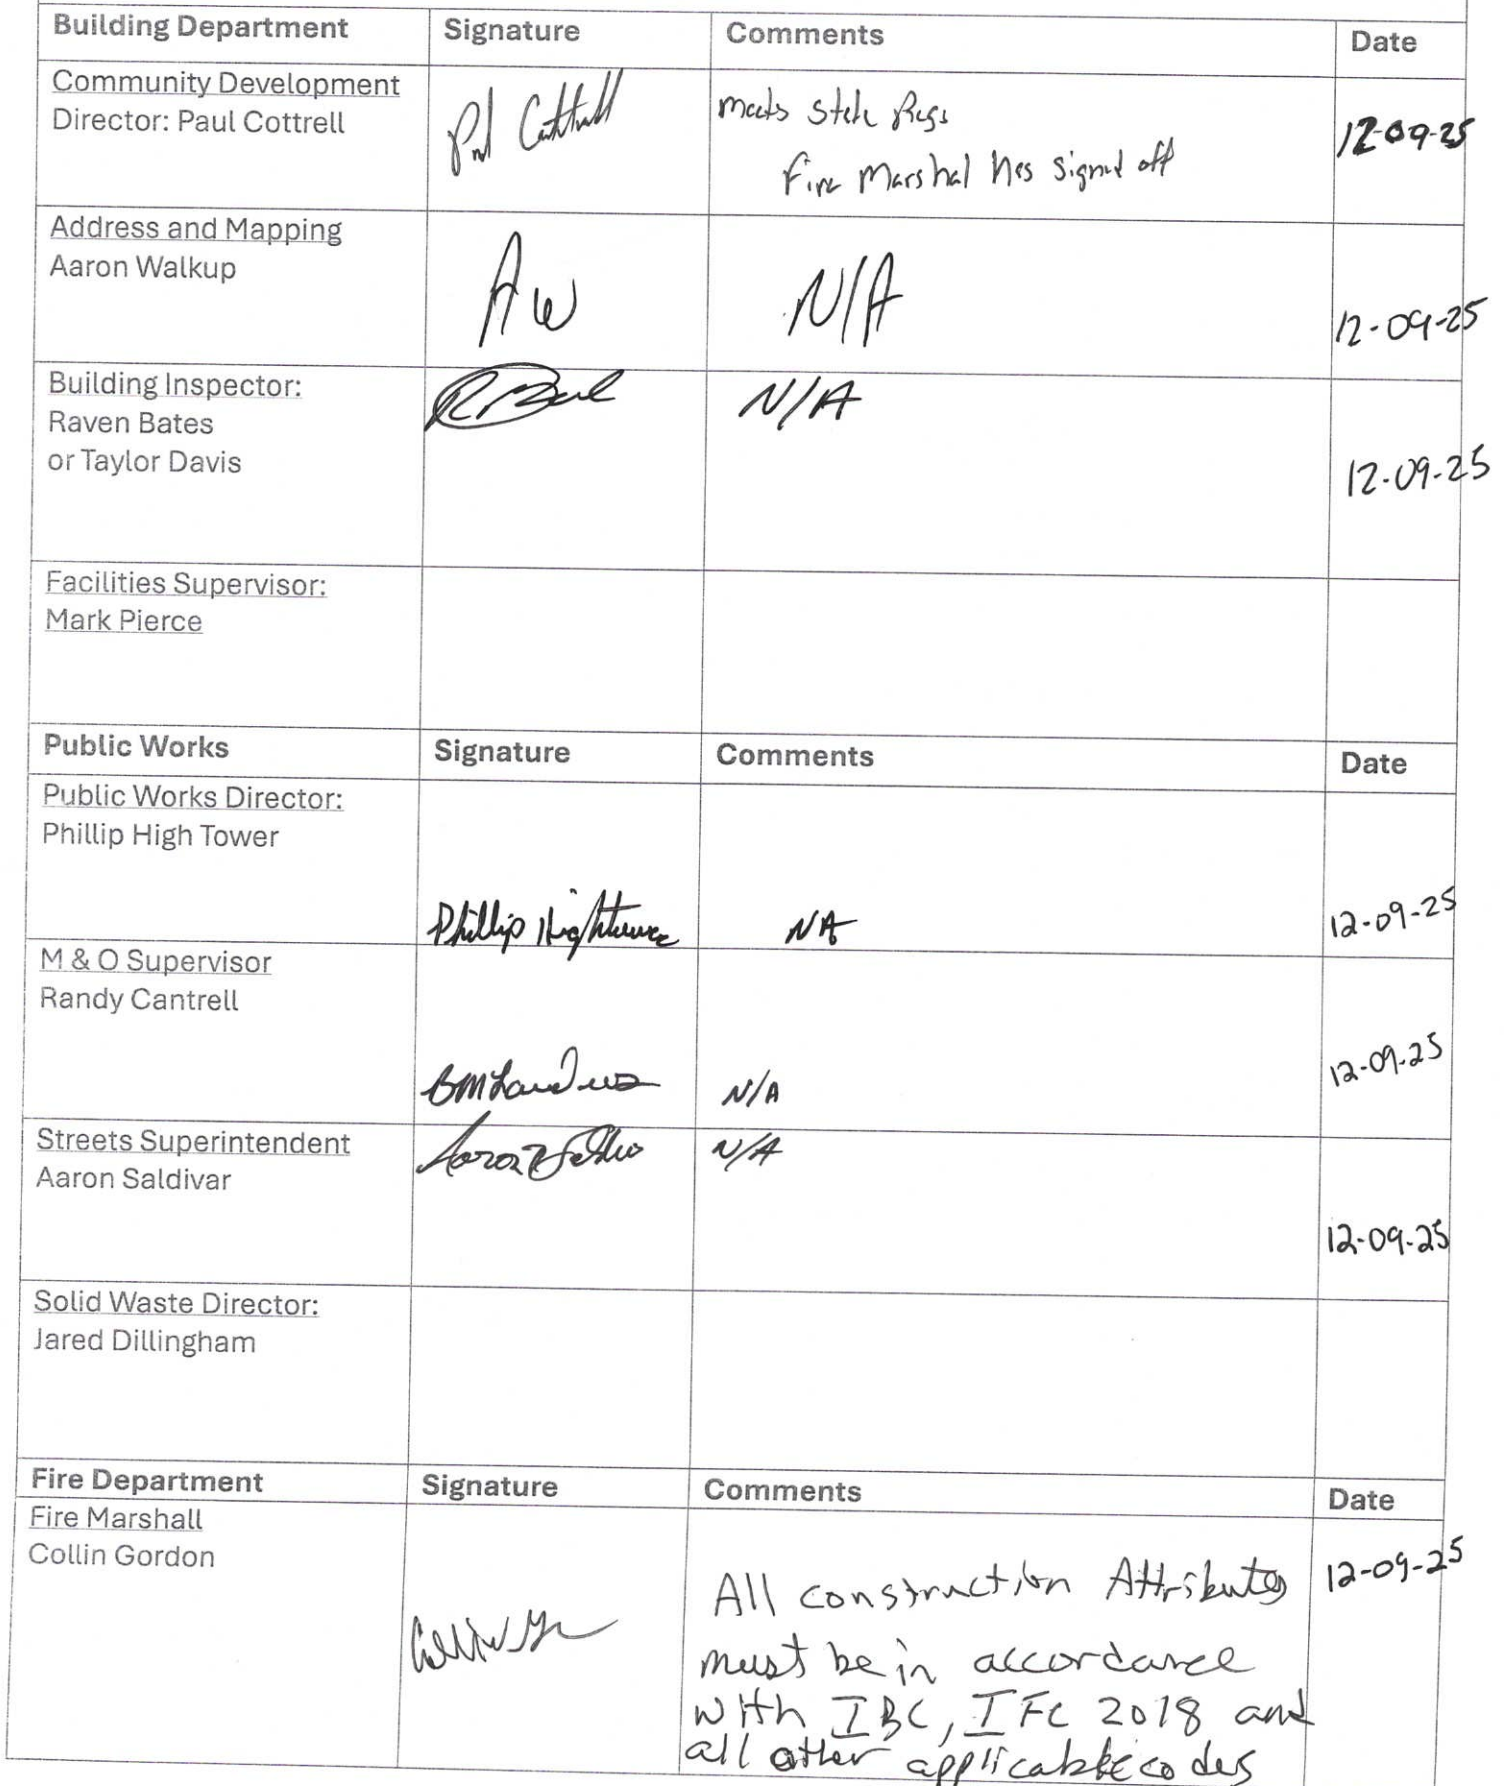 Building Department Signature Comments Date
Community Development
Director: Paul Cottrell
Paul Cottrell
meets State Regs
Fire Marshal has signed off
12-09-25
Address and Mapping
Aaron Walkup
AW
N/A
12-09-25
Building Inspector:
Raven Bates
or Taylor Davis
N/A
12-09-25
Facilities Supervisor:
Mark Pierce
Public Works Signature Comments Date
Public Works Director:
Phillip High Tower
Phillip Hightower
NA
12-09-25
M & O Supervisor
Randy Cantrell
N/A
12-09-25
Streets Superintendent
Aaron Saldivar
N/A
12-09-25
Solid Waste Director:
Jared Dillingham
Fire Department Signature Comments Date
Fire Marshall
Collin Gordon
All construction Attributes
must be in accordance
with IBC, IFC 2018 and
all other applicable codes
12-09-25